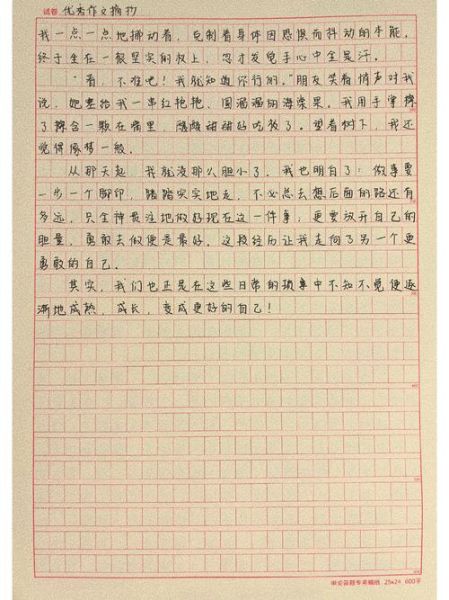 试卷 优秀作文摘抄
我一点一点地挪动着，克制着身体因恐惧而抖动的本能，
终于坐在一根坚实的枝上，忽才发觉手心中全是汗。
“看，不难吧！我就知道你行的。”朋友笑着悄声对我
说，她塞给我一串红艳艳、圆溜溜的海棠果。我用手擦
了擦含一颗在嘴里，酸酸甜甜好吃极了。望着树下，我还
觉得像梦一般。
从那天起，我就没那么胆小了，我也明白了：做事要
一步一个脚印，踏踏实实地走，不必总去想后面的路还有
多远，只全神贯注地做好现在这一件事，更要放开自己的
胆量，勇敢去做便是最好。这段经历让我走向了另一个更
勇敢的自己。
其实，我们也正是在这些日常的琐事中不知不觉便逐
渐地成熟，成长，变成更好的自己！
申论答题专用稿纸 25x24 600字